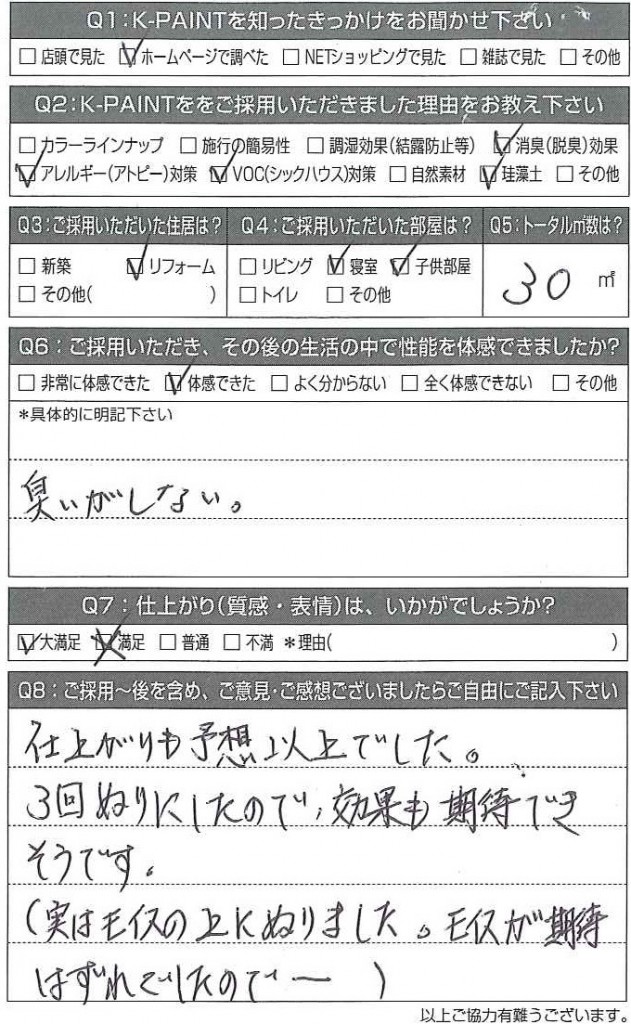 Q1：K-PAINTを知ったきっかけをお聞かせ下さい
□ 店頭で見た ☑ ホームページで調べた □ NETショッピングで見た □ 雑誌で見た □ その他
Q2：K-PAINTををご採用いただきました理由をお教え下さい
□ カラーラインナップ □ 施行の簡易性 □ 調湿効果(結露防止等) ☑ 消臭(脱臭)効果
☑ アレルギー(アトピー)対策 ☑ VOC(シックハウス)対策 □ 自然素材 ☑ 珪藻土 □ その他
Q3：ご採用いただいた住居は? Q4：ご採用いただいた部屋は? Q5：トータル㎡数は?
□ 新築 ☑ リフォーム □ リビング ☑ 寝室 ☑ 子供部屋 30 ㎡
□ その他( ) □ トイレ □ その他
Q6：ご採用いただき、その後の生活の中で性能を体感できましたか?
□ 非常に体感できた ☑ 体感できた □ よく分からない □ 全く体感できない □ その他
*具体的に明記下さい
臭いがしない。
Q7：仕上がり(質感・表情)は、いかがでしょうか?
☑ 大満足 ☒ 満足 □ 普通 □ 不満 *理由( )
Q8：ご採用～後を含め、ご意見・ご感想ございましたらご自由にご記入下さい
仕上がりも予想以上でした。
3回ぬりにしたので、効果も期待でき
そうです。
(実はモイスの上にぬりました。モイスが期待
はずれでしたのでー )
以上ご協力有難うございます。